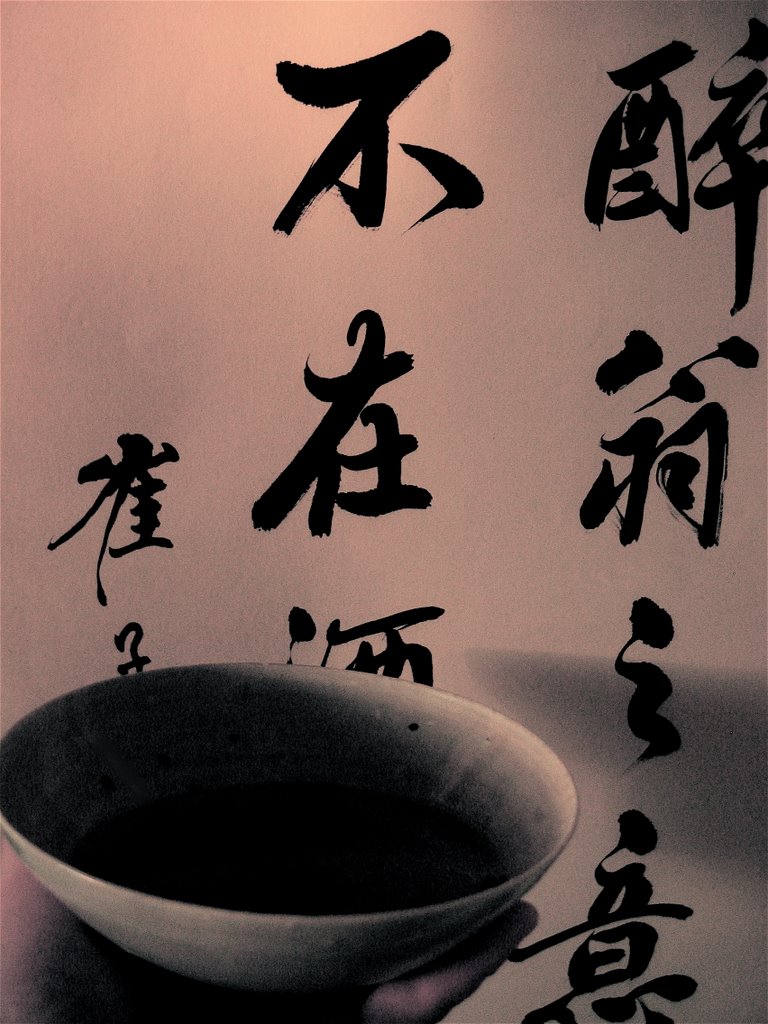 醉翁之意
不在酒
崔子